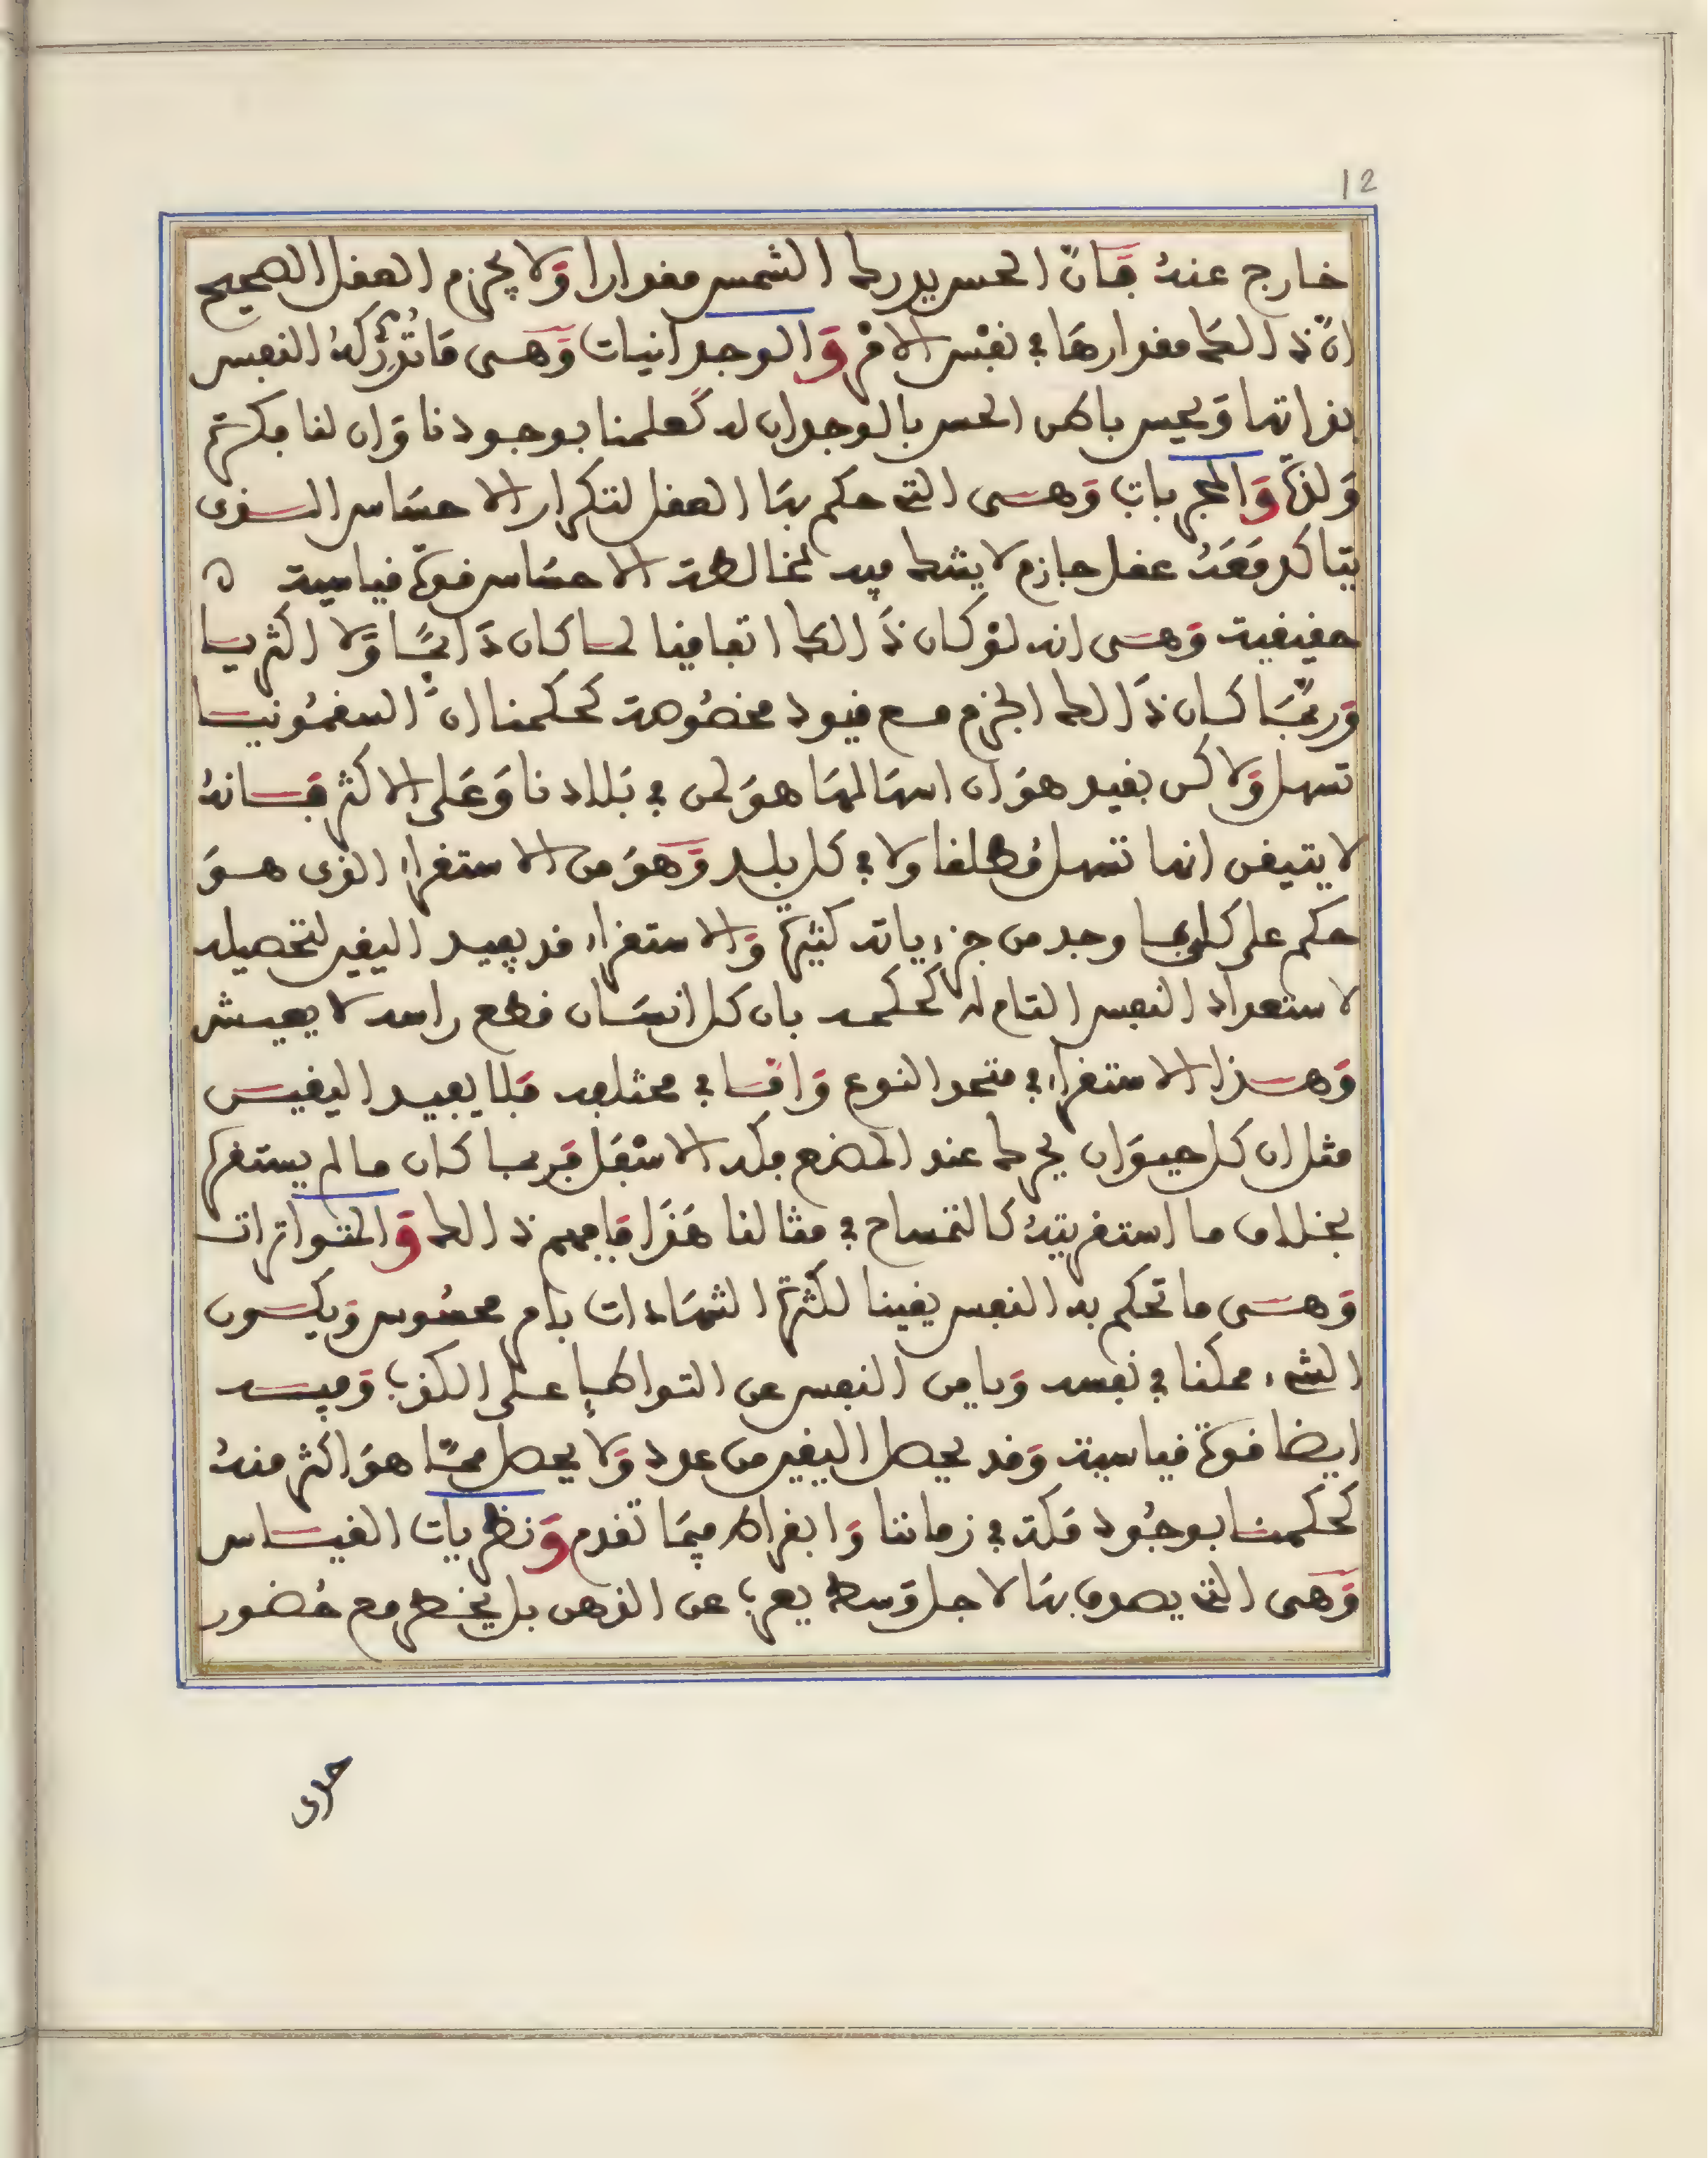 12
خارج عنهُ فَإنّ الحس يدرك الشمس مقدارا وَلا يجزم العقل الصحيح
انّ ذالك مقدارهَا في نفْس الامْر وَالوجدانيات وَهــى مَا تُدْرِكهُ النفس
بذاتها وَيحس باطن الحس بالوجدان له كَعلمنا بوجودنا وَان لنا فكرة
وَلذة وَالمجربات وَهــى التي حكم بهَا العقل لتكرار الاحسَاس الــذى
يتاكد مَعَهُ عقل جازم لا يشك فيه لمخالطة الاحسَاس قوة قياسية
حقيقية وَهــى انه لوْ كان ذَالك اتفاقيا لمــا كان دَائمًا وَلا اكثريــا
وَربمَا كــان ذَالك الجزم مــع قيود مخصُوصة كحكمنا انَّ السقمُونيــا
تسهل وَلاكن بقيد هوَ ان اسهالهَا هوَ لمن في بَلادنا وَعَلى الاكثر فَــانهُ
لا يتيقن انها تسهل مُطلقا ولا في كل بلــد وَهوَ من الاستقراء الذى هــوَ
حكم على كلي بمــا وجد من جزءياته كثيرة وَالاستقراء قد يفيــد اليقين لتحصيله
لاستعداد النفس التام له كحكمــه بان كل انسَــان قطع راسه لا يعيــش
وَهــذا الاستقراء في متحد النوع وَامّــا في مختلفه فَلا يفيــد اليقيــن
مثل ان كل حيــوَان يحرك عند المضغ فكه الاسْفَل فَربمــا كــان مــا لم يستقرا
بخــلاف ما استقريتهُ كالتمساح في مثالنا هَذَا فَافهم ذالك وَالمتواترات
وَهــى ما تحكم به النفس يقينا لكثرة الشهَادات بامر محسُوس وَيكــون
الشيء ممكنا في نفسه وَيامن النفس عن التواطئ على الكذب وَفيــه
ايضا قوة قياسية وَقد يحصل اليقين من عدد وَلا يحصل ممّا هوَ اكثر منهُ
كحكمنــا بوجُود مَكة في زماننا وَابقراط فيمَا تقدم وَنظريات القيــاس
وَهى التي يصدق بهَا لاجل وَسط يعزب عن الذهن بل يخطر مع حُضور
حدى